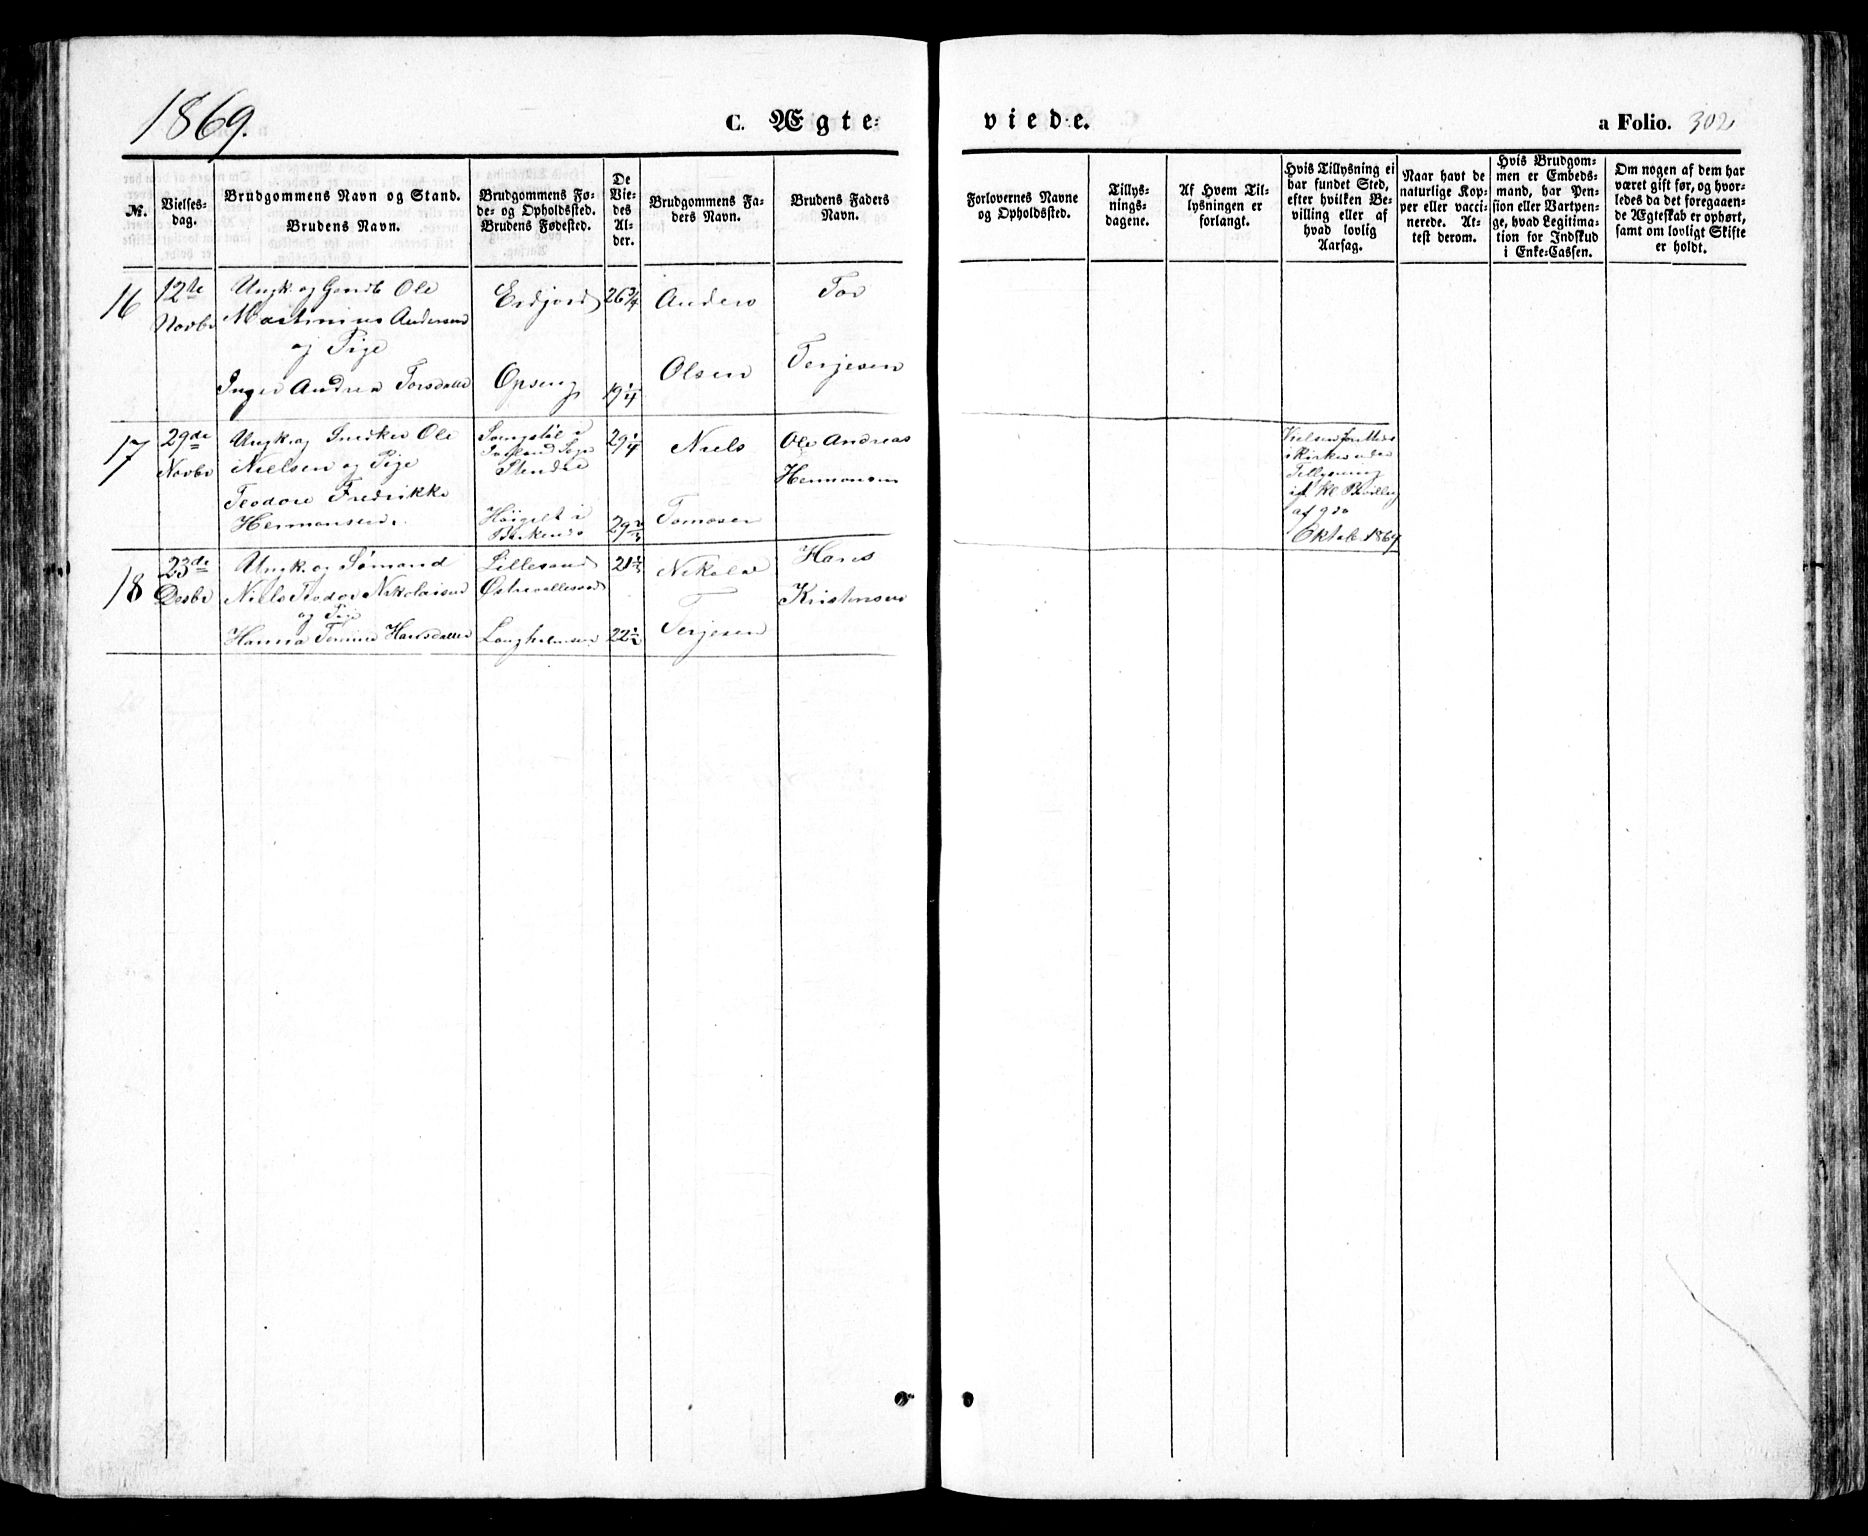 1869.
C. Ægte-
viede.
a Folio. 302
№.
Vielses-
dag.
Brudgommens Navn og Stand.
Brudens Navn.
Brudgommens Fø-
de- og Opholdssted.
Brudens Fødested.
De
Vie-
des
Al-
der.
Brudgommens Fa-
ders Navn.
Brudens Faders
Navn.
Forlovernes Navne
og Opholdssted.
Tillys-
nings-
dagene.
Af Hvem Til-
lysningen er
forlangt.
Hvis Tillysning ei
har fundet Sted,
efter hvilken Be-
villing eller af
hvad lovlig
Aarsag.
Naar havt de
naturlige Kop-
per eller vacci-
nerede. At-
test derom.
Hvis Brudgom-
men er Embeds-
mand, har Pen-
sion eller Vartpen-
ge, hvad Legitima-
tion for Indskud
i Enke-Cassen.
Om nogen af dem har
været gift før, og hvor-
ledes da det foregaaen-
de Ægteskab er ophørt,
samt om lovligt Skifte
er holdt.
16
12te
Novbr
Ungk og Gaardb Ole
Martinius Andersen
og Pige
Inger Andrea Torsdatter
Opseng
26 3/4
19 1/4
Anders
Olsen
Tor
Terjesen
17
29de
Novbr
Ungk og Snedker Ole
Nielsen og Pige
Teodore Fredrikke
Hermansen.
29 1/4
29 2/3
Niels
Tomasen
Ole Andreas
Hermansen
Kirken uden
Tillysning
af 9de
Oktob. 1869
18
23de
Desbr
Ungk. og Sømand
Niels Teodor Nikolaisen
og Pige
Hanna Tomine Hansdatter
Lillesand
Langholmen
22 1/2
Nikolai
Terjesen
Hans
Kristensen